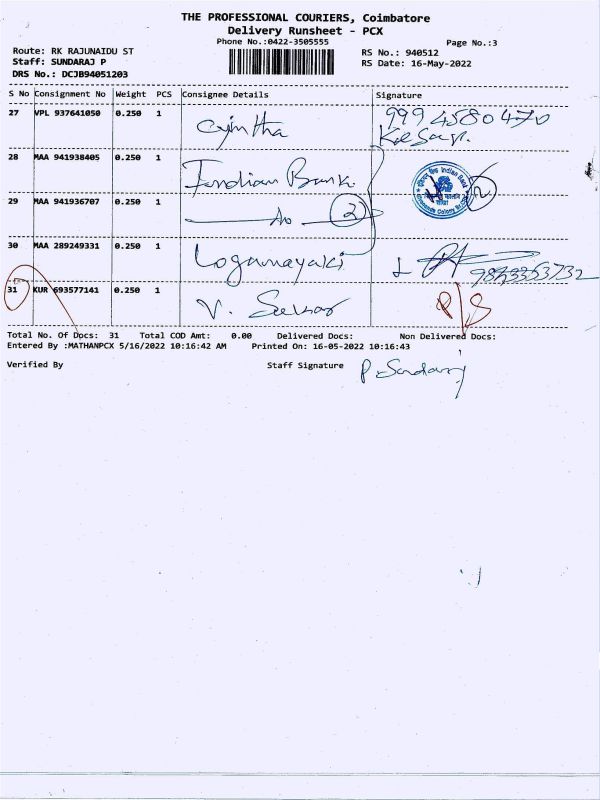 THE PROFESSIONAL COURIERS, Coimbatore
Delivery Runsheet - PCX
Phone No.:0422-3505555
Page No.:3
Route: RK RAJUNAIDU ST
RS No.: 940512
Staff: SUNDARAJ P
RS Date: 16-May-2022
DRS No.: DCJB94051203
S No Consignment No Weight PCS Consignee Details Signature
27 VPL 937641050 0.250 1
28 MAA 941938405 0.250 1 Indian Bank
Indian Bank
29 MAA 941936707 0.250 1 do 2
30 MAA 289249331 0.250 1 Loganayaki
31 KUR 693577141 0.250 1 V. P/S
Total No. Of Docs: 31 Total COD Amt: 0.00 Delivered Docs: Non Delivered Docs:
Entered By :MATHANPCX 5/16/2022 10:16:42 AM Printed On: 16-05-2022 10:16:43
Verified By Staff Signature